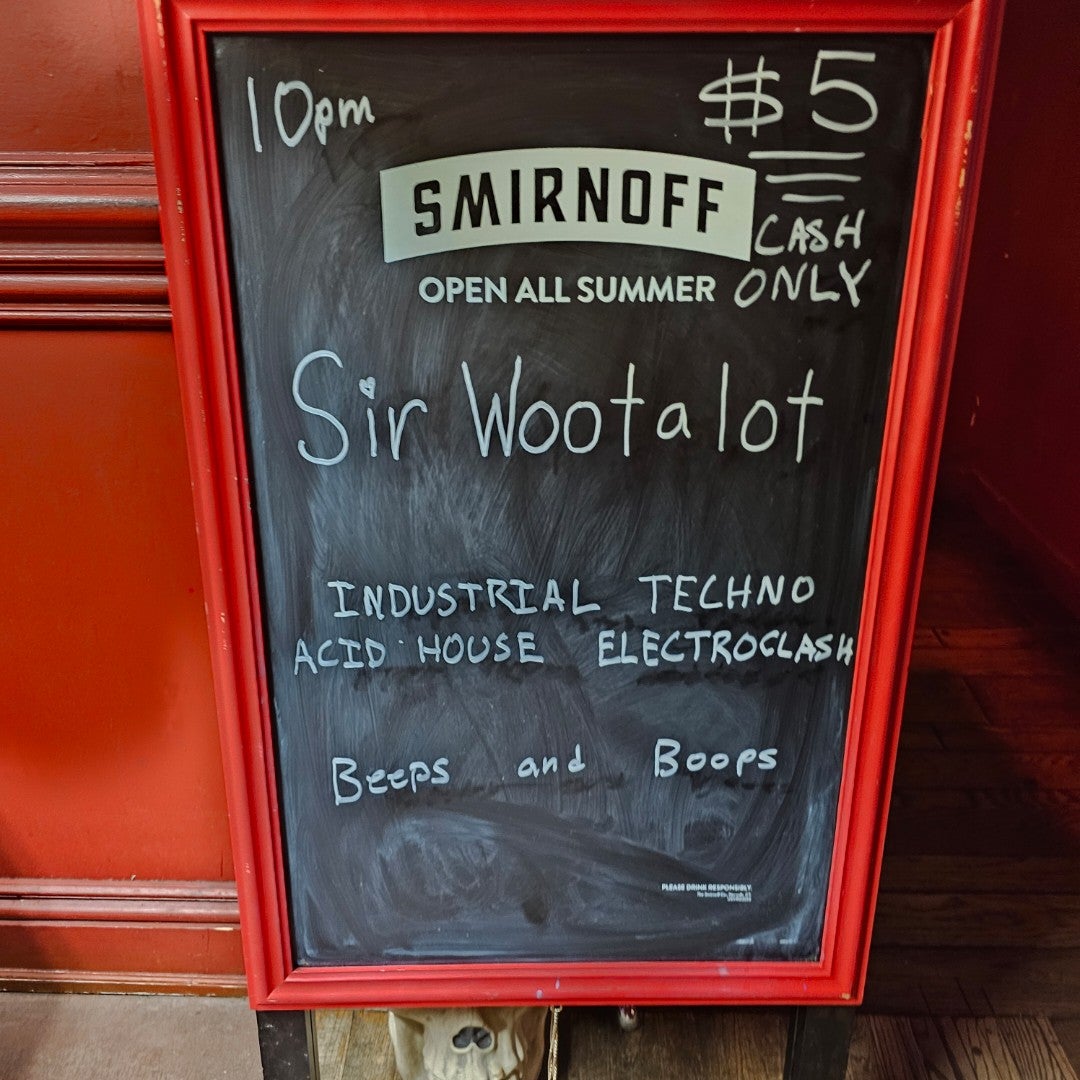 10pm
$5
SMIRNOFF
CASH
ONLY
OPEN ALL SUMMER
Sir Wootalot
INDUSTRIAL TECHNO
ACID HOUSE ELECTROCLASH
Beeps and Boops
PLEASE DRINK RESPONSIBLY.